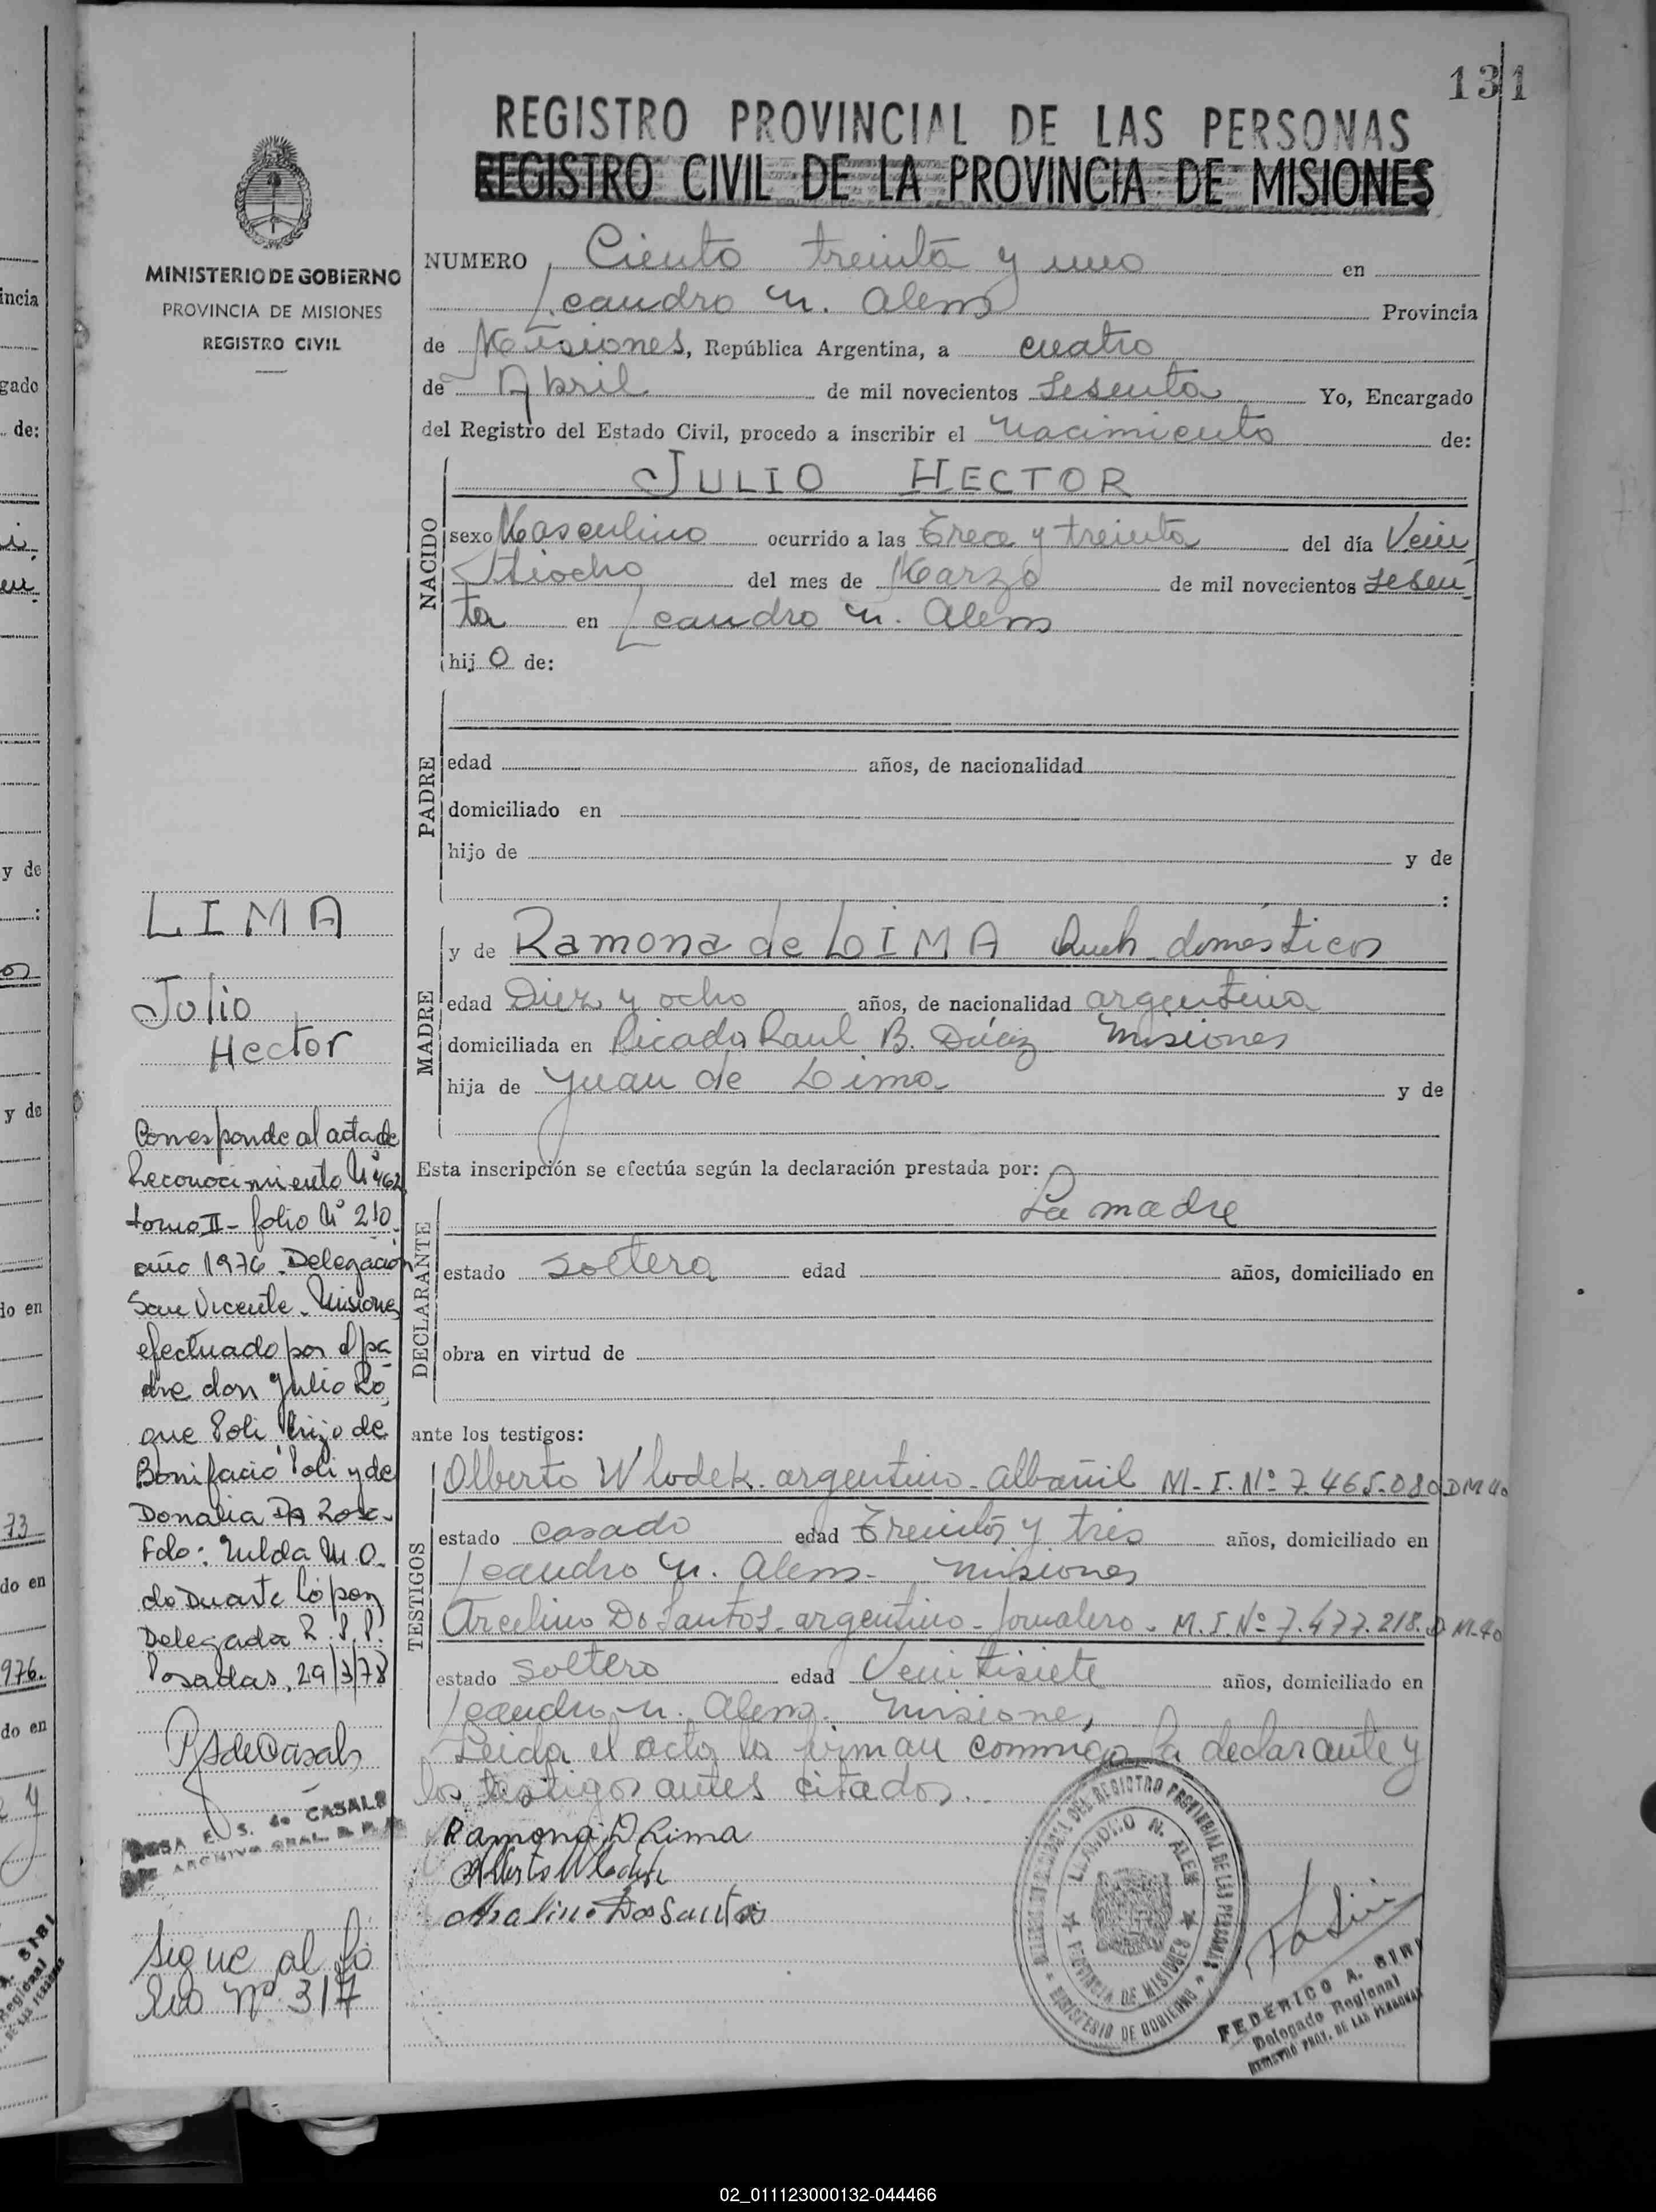 131
REGISTRO PROVINCIAL DE LAS PERSONAS
REGISTRO CIVIL DE LA PROVINCIA DE MISIONES
MINISTERIO DE GOBIERNO
PROVINCIA DE MISIONES
REGISTRO CIVIL
NUMERO Ciento treinta y uno en
Leandro N. Alem Provincia
de Misiones, República Argentina, a cuatro
de Abril de mil novecientos sesenta Yo, Encargado
del Registro del Estado Civil, procedo a inscribir el nacimiento de:
NACIDO
JULIO HECTOR
sexo Masculino ocurrido a las Trece y treinta del día Vein
tiocho del mes de Marzo de mil novecientos sesen
ta en Leandro N. Alem
hijo de:
PADRE
edad años, de nacionalidad
domiciliado en
hijo de y de
:
MADRE
y de Ramona de LIMA Queh. domesticos
edad Diez y ocho años, de nacionalidad argentina
domiciliada en Picada Raul B. Díaz Misiones
hija de Juan de Lima y de
Esta inscripción se efectúa según la declaración prestada por:
DECLARANTE
La madre
estado soltera edad años, domiciliado en
obra en virtud de
ante los testigos:
TESTIGOS
Alberto Wlodek. argentino. albañil M.I.Nº 7.465.080 DM 40
estado casado edad Treinta y tres años, domiciliado en
Leandro N. Alem - Misiones
Arcelino Do Santos. argentino - jornalero - M.I.Nº 7.477.218. D M-40
estado soltero edad Veintisiete años, domiciliado en
Leandro N. Alem. Misiones,
Leida el acta la firman conmigo la declarante y
los testigos antes citados.
Ramona D Lima
Alberto Wlodek
Dos Santos
LEANDRO N. ALEM
PROVINCIA DE MISIONES
MINISTERIO DE GOBIERNO
FEDERICO A. SIRI
Delegado Regional
REGISTRO PROV. DE LAS PERSONAS
LIMA
Julio
Hector
Corresponde al acta de
Reconocimiento Nº 462
tomo II - folio Nº 210
año 1976. Delegación
San Vicente. Misiones
efectuado por el pa
dre don Julio Ro
que Poli, hijo de
Bonifacio Poli y de
Donalia Da Rosa.
Fdo: Nilda M. O.
de Duarte López
Delegada R.P.P.
Posadas, 29/3/78
E. S. de CASALS
ARCHIVO GRAL. R. P. P.
Sigue al fo
lio Nº 317
incia
gado
de:
y de
:
y de
do en
73
do en
976.
do en
02_011123000132-044466